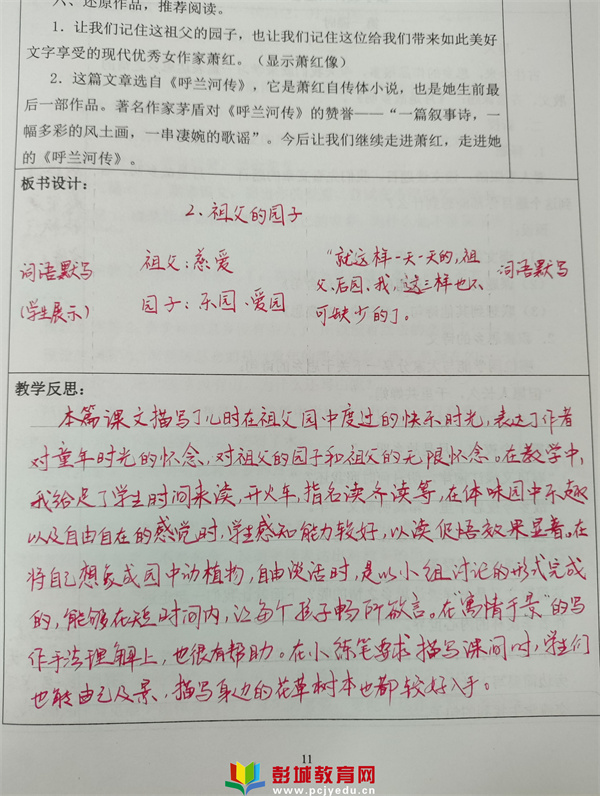 六、还原作品，推荐阅读。
1．让我们记住这祖父的园子，也让我们记住这位给我们带来如此美好
文字享受的现代优秀女作家萧红。（显示萧红像）
2．这篇文章选自《呼兰河传》，它是萧红自传体小说，也是她生前最
后一部作品。著名作家茅盾对《呼兰河传》的赞誉——“一篇叙事诗，一
幅多彩的风土画，一串凄婉的歌谣”。今后让我们继续走进萧红，走进她
的《呼兰河传》。
板书设计：
2、祖父的园子
词语默写
(学生展示)
祖父：慈爱
园子：乐园、爱园
“就这样一天一天的，祖
父、后园、我，这三样也不
可缺少的了。
词语默写
教学反思：
本篇课文描写了儿时在祖父园中度过的快乐时光，表达了作者
对童年时光的怀念，对祖父的园子和祖父的无限怀念。在教学中，
我给足了学生时间来读，开火车，指名读齐读等，在体味园中乐趣
以及自由自在的感觉时，学生感知能力较好，以读促悟效果显著。在
将自己想象成园中动植物，自由说话时，是以小组讨论的形式完成
的，能够在短时间内，让每个孩子畅所欲言。在“寓情于景”的写
作手法理解上，也很有帮助。在小练笔要求描写课间时，学生们
也能由己及景，描写身边的花草树木也都较好入手。
11
彭城教育网
www.pcjyedu.cn